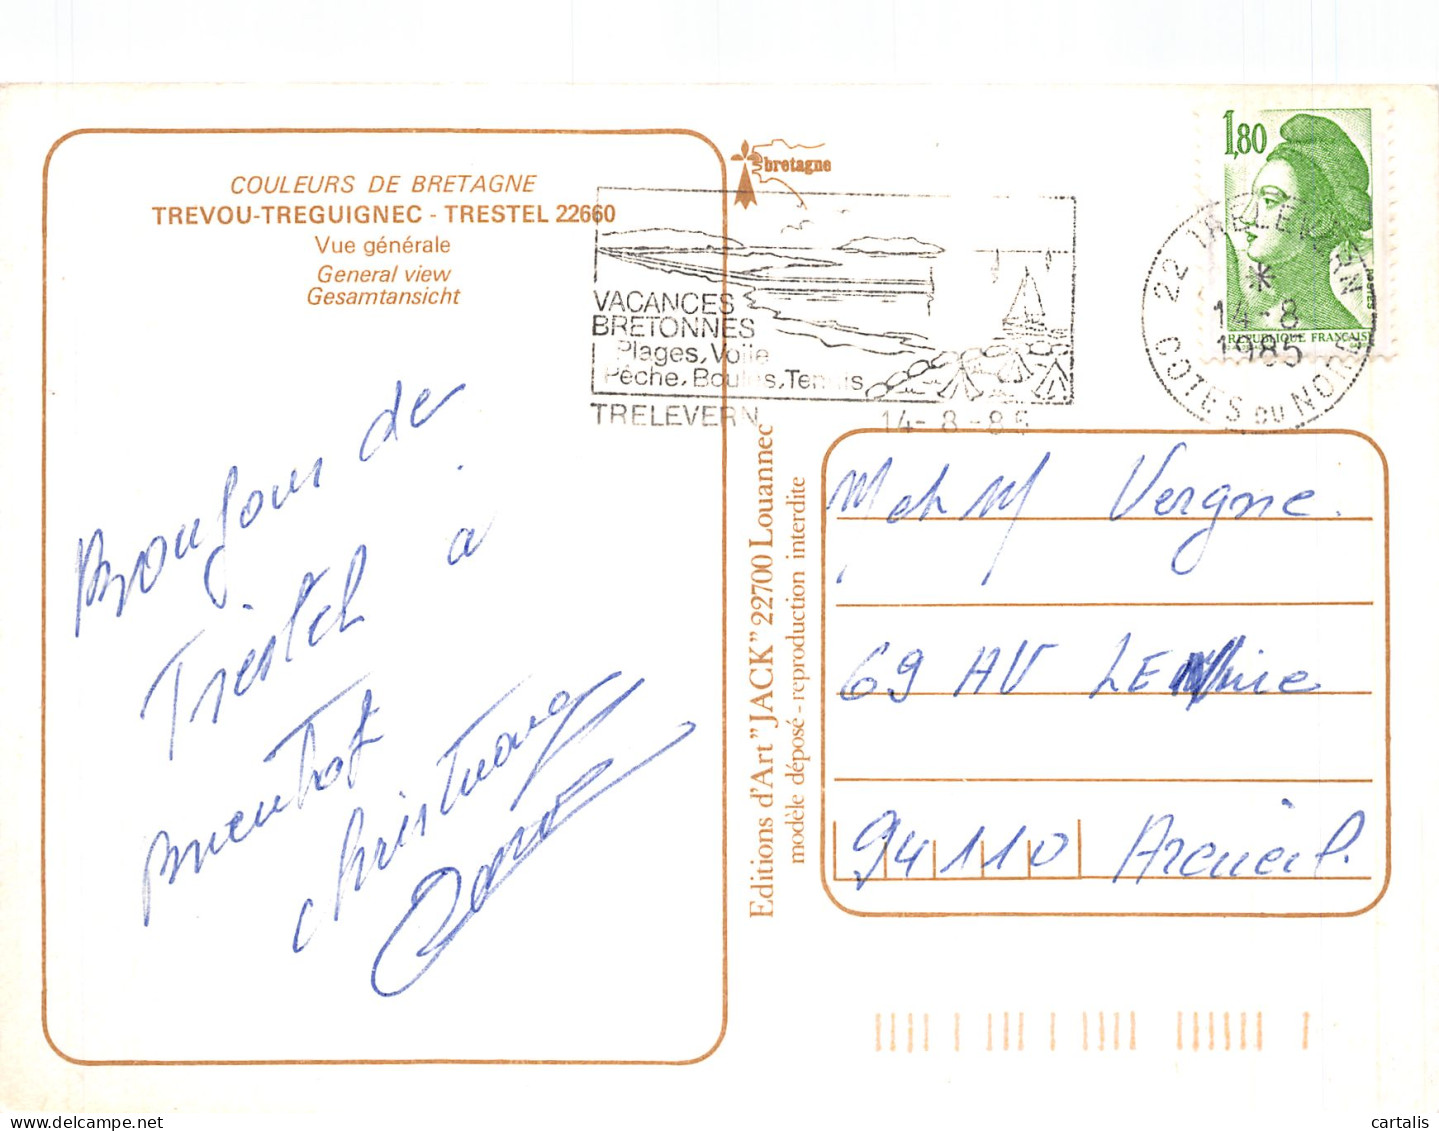 COULEURS DE BRETAGNE
TREVOU-TREGUIGNEC - TRESTEL 22660
Vue générale
General view
Gesamtansicht
Bonjour de
Trestel à
bretagne
VACANCES
BRETONNES
Plages, Voile
Pêche, Boules, Tennis
TRELEVERN
14-8-85
1,80
REPUBLIQUE FRANCAISE
22 TRELEVERN
14-8
1985
COTES DU NORD
Editions d'Art "JACK" 22700 Louannec
modèle déposé - reproduction interdite
Vergne
69 AV LENine
94110 Arcueil.
cartalis